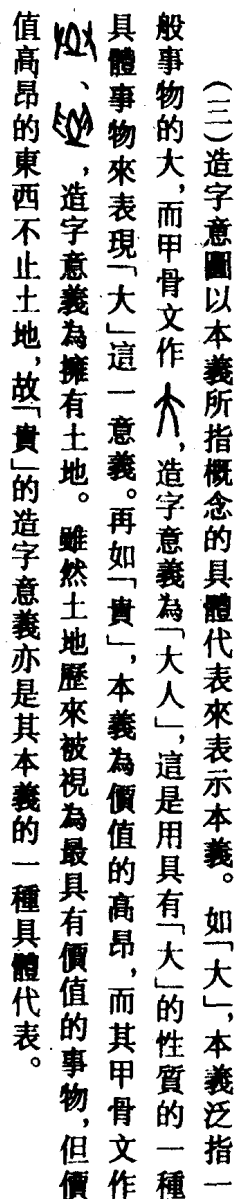 (三)造字意圖以本義所指概念的具體代表來表示本義。如「大」,本義泛指一
般事物的大,而甲骨文作,造字意義為「大人」,這是用具有「大」的性質的一種
具體事物來表現「大」這一意義。再如「貴」,本義為價值的高昂,而其甲骨文作
、,造字意義為擁有土地。雖然土地歷來被視為最具有價值的事物,但價
值高昂的東西不止土地,故「貴」的造字意義亦是其本義的一種具體代表。